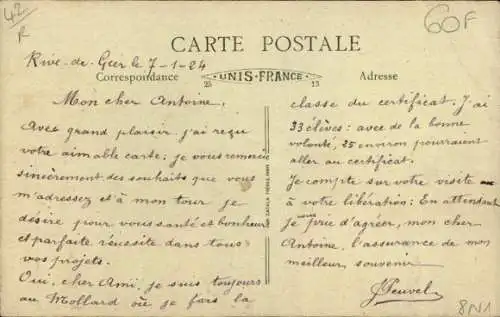 42
R
60F
CARTE POSTALE
Rive-de-Gier le 7-1-24
Correspondance
25 UNIS-FRANCE 13
Adresse
Mon cher Antoine,
Avec grand plaisir j'ai reçu
votre aimable carte: je vous remercie
sincèrement des souhaits que vous
m'adressez et à mon tour je
désire pour vous santé et bonheur
et parfaite réussite dans tous
vos projets.
Oui, cher Ami, je suis toujours
au Mollard où je fais la
classe du certificat. J'ai
33 élèves: avec de la bonne
volonté, 25 environ pourraient
aller au certificat.
Je compte sur votre visite
à votre libération: En attendant
je vous prie d'agréer, mon cher
Antoine, l'assurance de mon
meilleur souvenir
8N1